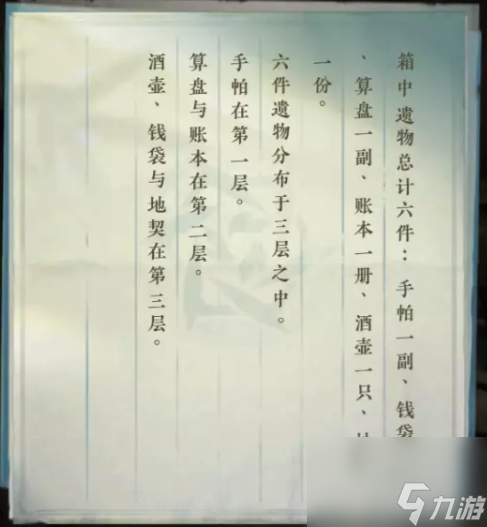 箱中遗物总计六件：手帕一副、钱袋
、算盘一副、账本一册、酒壶一只、
一份。
六件遗物分布于三层之中。
手帕在第一层。
算盘与账本在第二层。
酒壶、钱袋与地契在第三层。
九游